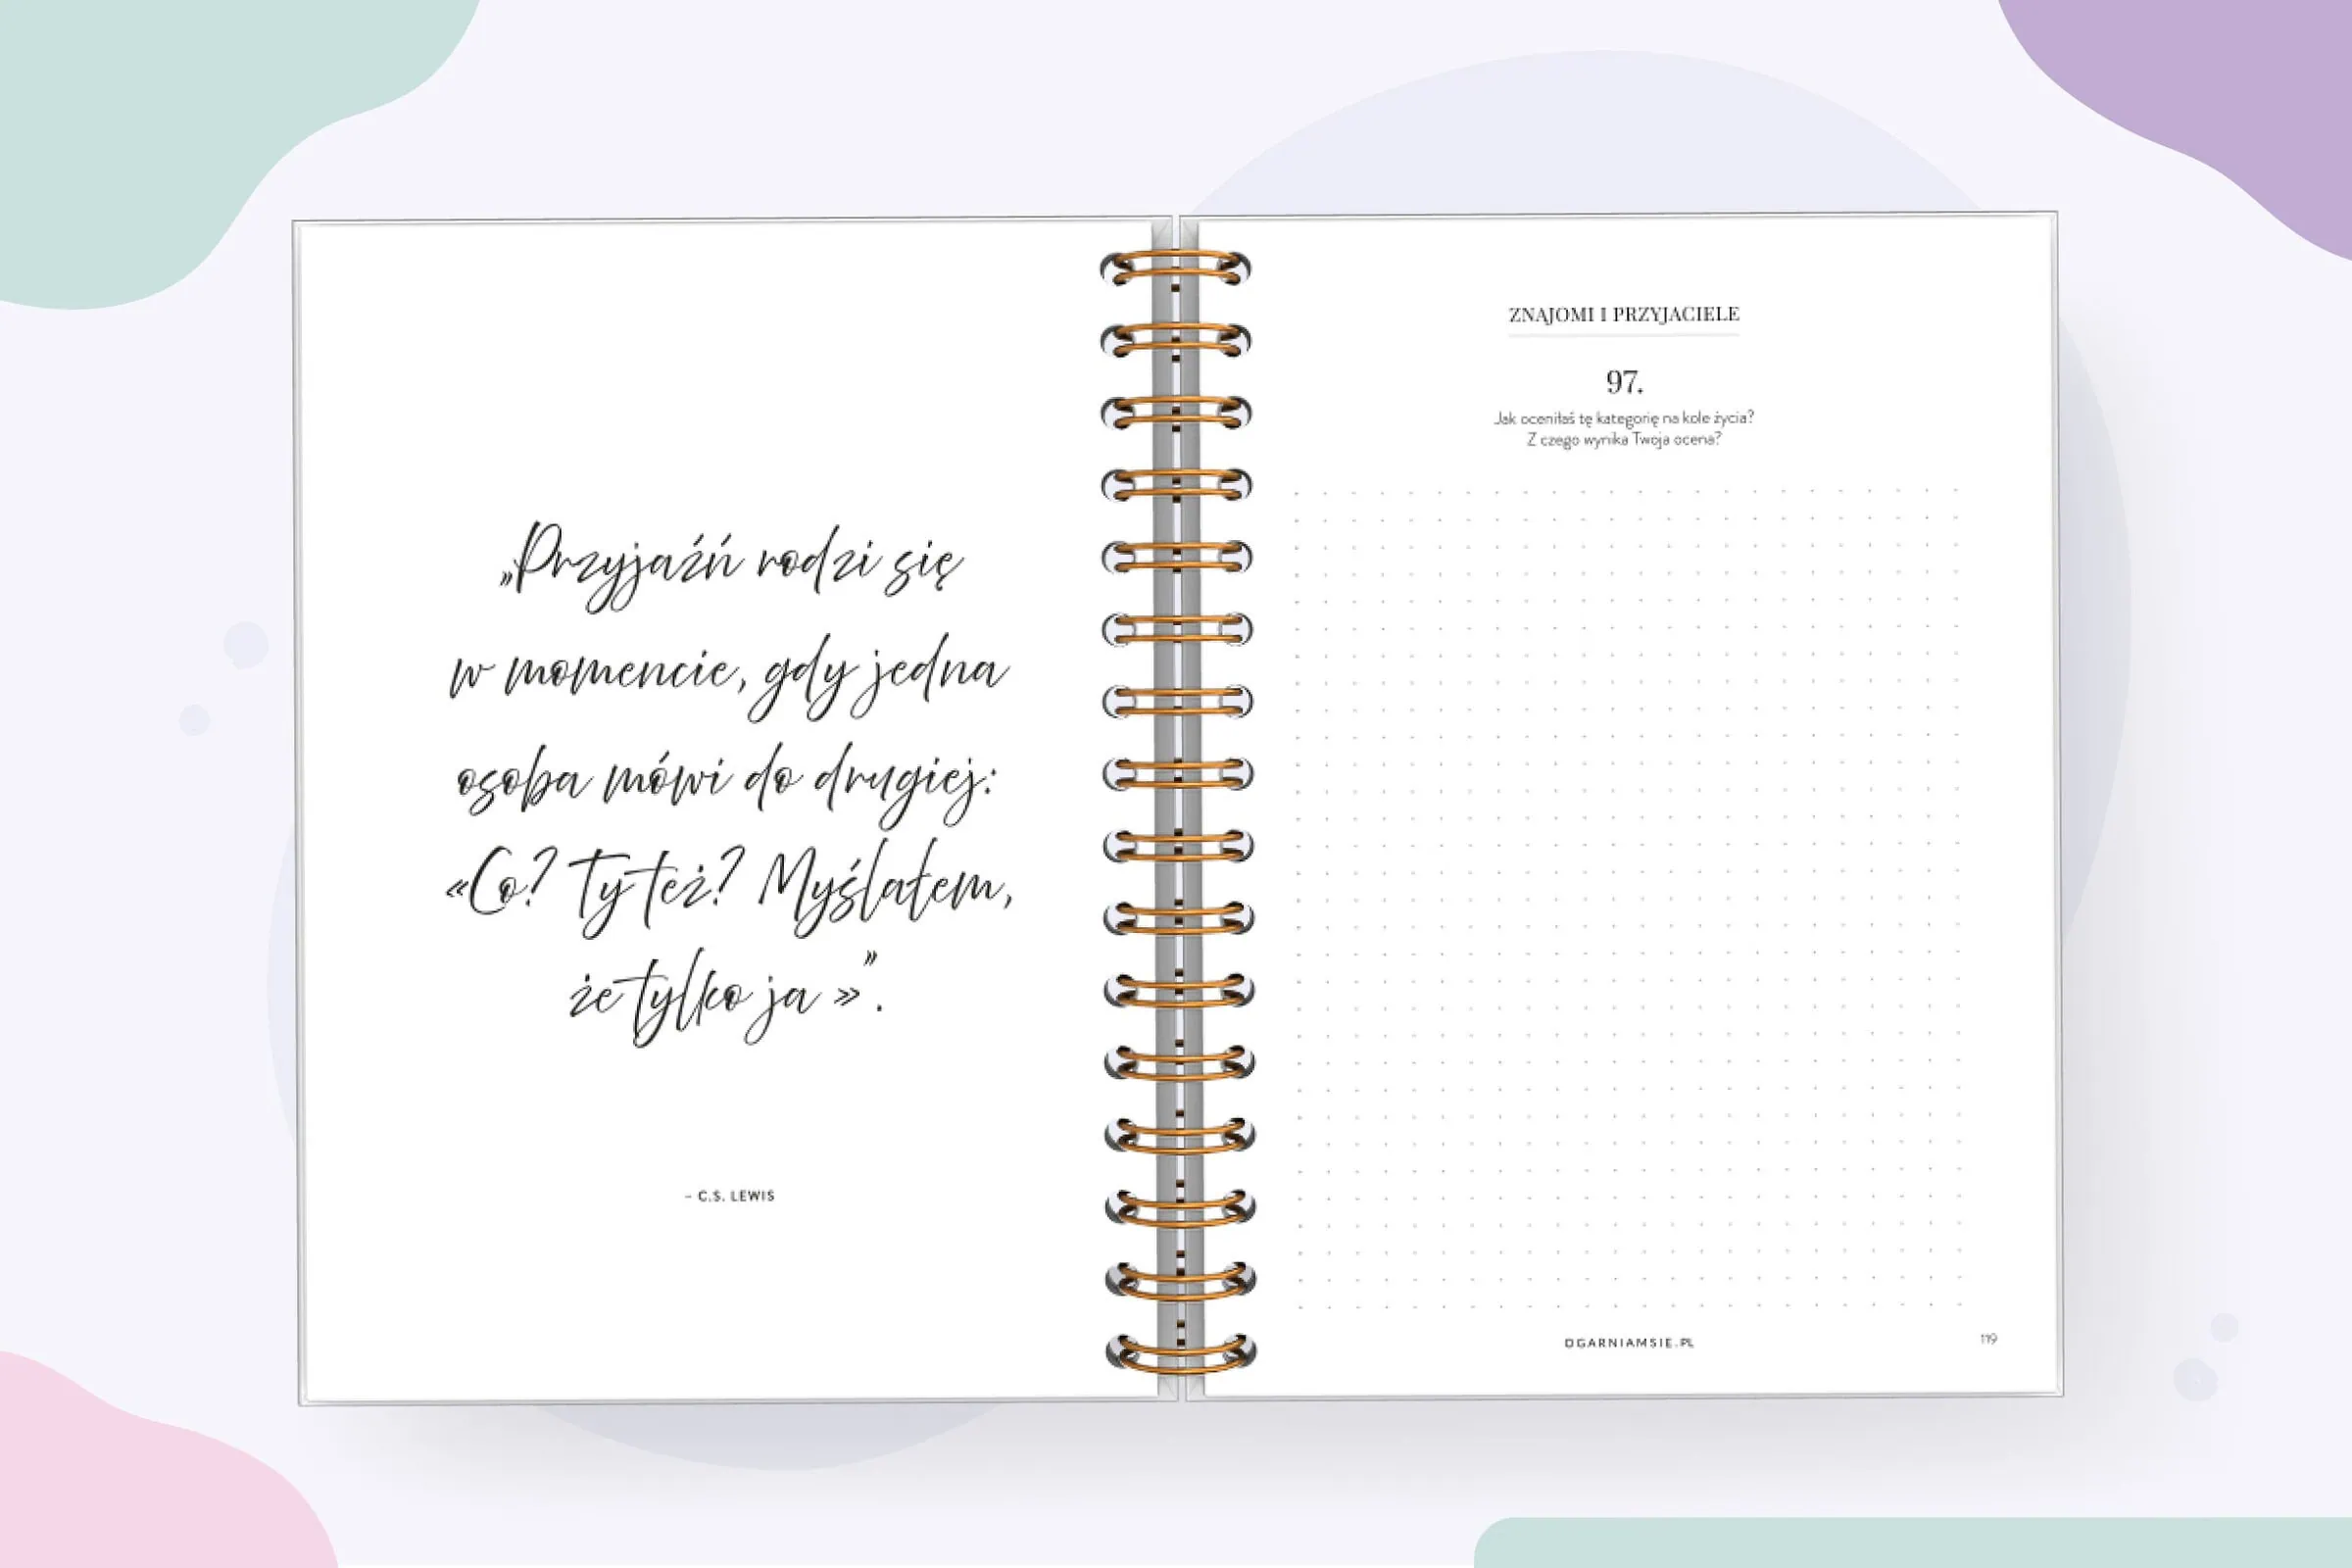 „Przyjaźń rodzi się
w momencie, gdy jedna
osoba mówi do drugiej:
«Co? Ty też? Myślałem,
że tylko ja »”.
– C.S. LEWIS
ZNAJOMI I PRZYJACIELE
97.
Jak oceniłaś tę kategorię na kole życia?
Z czego wynika Twoja ocena?
OGARNIAMSIE.PL
119